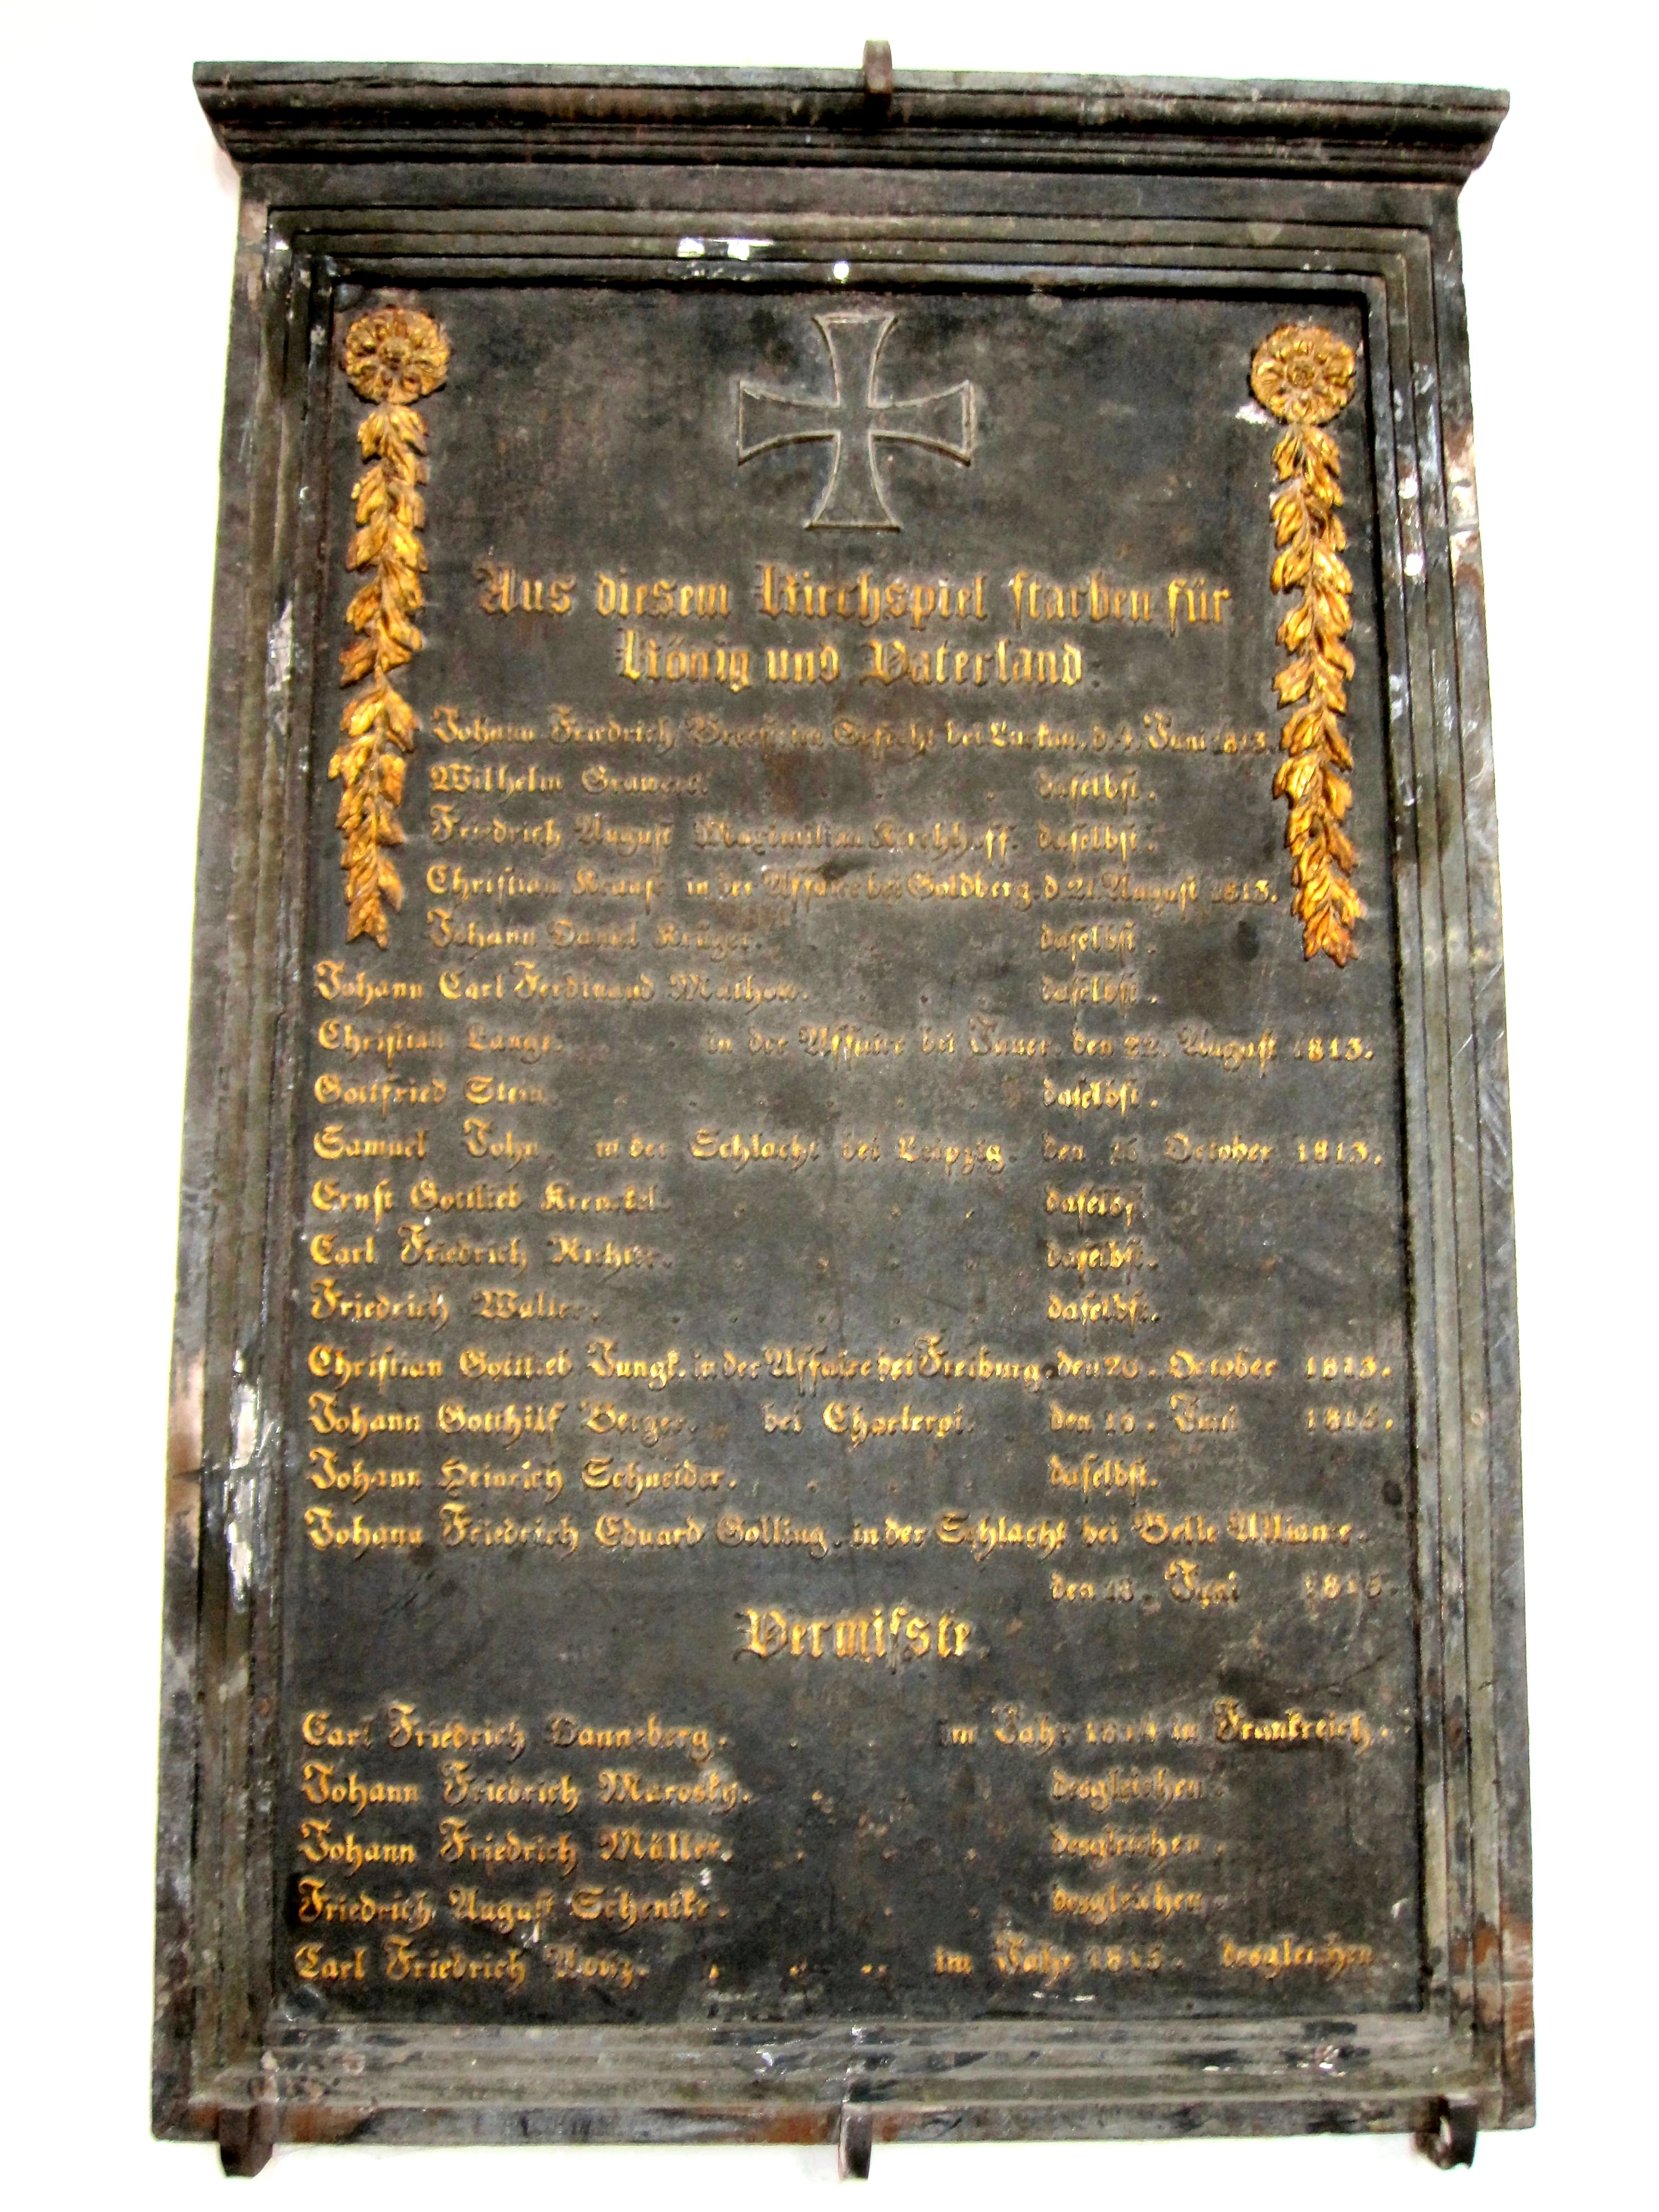 Aus diesem Kirchspiel starben für
König und Vaterland.
Johann Friedrich im Gefecht bei Luckau. d. 4. Juni 1813.
Wilhelm daselbst.
Friedrich August Maximilian Kirchhoff. daselbst.
Christian Krause in der Affaire bei Goldberg. d. 21. August 1813.
Johann Daniel Krüger. daselbst.
Johann Carl Ferdinand Mathow. daselbst.
Christian Lange. in der Affaire bei Jauer. den 22. August 1813.
Gottfried Stein. daselbst.
Samuel John. in der Schlacht bei Leipzig. den 16. October 1813.
Ernst Gottlieb daselbst.
Carl Friedrich Richter. daselbst.
Friedrich Walter. daselbst.
Christian Gottlieb Jungk. in der Affaire bei Freiburg. den 20. October 1813.
Johann Gotthilf Berger. bei Charleroi. den 15. Juni 1815.
Johann Heinrich Schneider. daselbst.
Johann Friedrich Eduard Golling. in der Schlacht bei Belle Alliance.
den 18. Juni 1815.
Vermisste
Carl Friedrich Danneberg. im Jahr 1814 in Frankreich.
Johann Friedrich Marosky. desgleichen.
Johann Friedrich Müller. desgleichen.
Friedrich August Schentke. desgleichen.
Carl Friedrich im Jahr 1815. desgleichen.